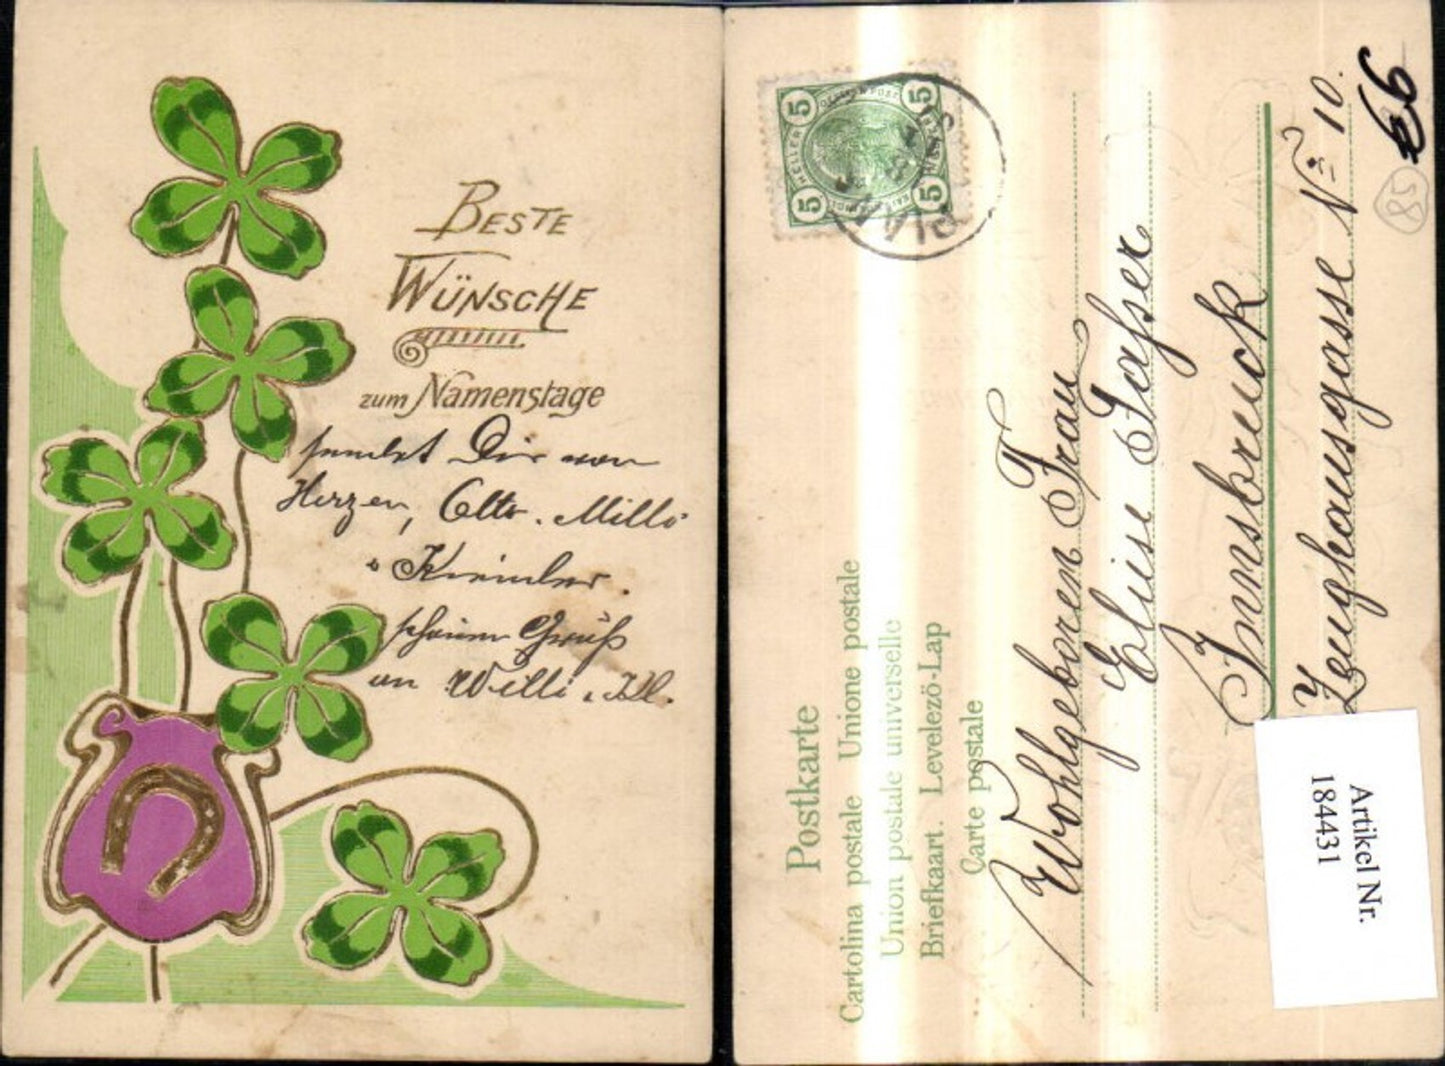 BESTE
WÜNSCHE
zum Namenstage
sendet Dir von
Herzen, Milli
Gruß
an Willi
5 5
HELLER
5 5
Postkarte
Cartolina postale Unione postale
Union postale universelle
Briefkaart. Levelező-Lap
Carte postale
Wohlgeboren Frau
Elise
Innsbruck
Zeughausgasse No 10.
85
Artikel Nr.
184431